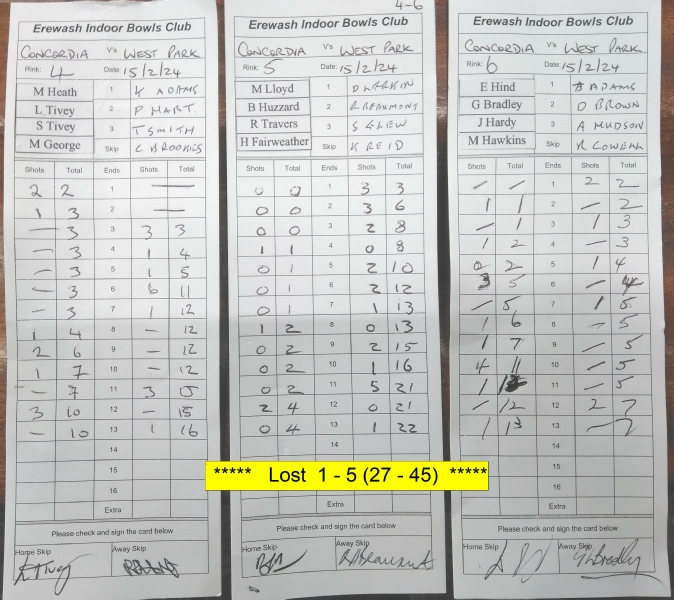 4-6
Erewash Indoor Bowls Club
CONCORDIA Vs WEST PARK
Rink: 4 Date: 15/2/24
M Heath 1 K ADAMS
L Tivey 2 P HART
S Tivey 3 T SMITH
M George Skip C BROOKES
Shots Total Ends Shots Total
2 2 1 —
1 3 2 —
— 3 3 3 3
— 3 4 1 4
— 3 5 1 5
— 3 6 6 11
— 3 7 1 12
1 4 8 — 12
2 6 9 — 12
1 7 10 — 12
— 7 11 3 15
3 10 12 — 15
— 10 13 1 16
14
15
16
Extra
Please check and sign the card below
Home Skip Away Skip
Erewash Indoor Bowls Club
CONCORDIA Vs WEST PARK
Rink: 5 Date: 15/2/24
M Lloyd 1 D LARKIN
B Huzzard 2 R BEAUMONT
R Travers 3 S GLEW
H Fairweather Skip K REID
Shots Total Ends Shots Total
0 0 1 3 3
0 0 2 3 6
0 0 3 2 8
1 1 4 0 8
0 1 5 2 10
0 1 6 2 12
0 1 7 1 13
1 2 8 0 13
0 2 9 2 15
0 2 10 1 16
0 2 11 5 21
2 4 12 0 21
0 4 13 1 22
14
***** Lost 1 - 5 (27 - 45) *****
Extra
Please check and sign the card below
Home Skip Away Skip
RABeaumont
Erewash Indoor Bowls Club
CONCORDIA Vs WEST PARK
Rink: 6 Date: 15/2/24
E Hind 1 ADAMS
G Bradley 2 O BROWN
J Hardy 3 A HUDSON
M Hawkins Skip R COWELL
Shots Total Ends Shots Total
— — 1 2 2
1 1 2 — 2
— 1 3 1 3
1 2 4 — 3
0 2 5 1 4
3 5 6 — 4
— 5 7 1 5
1 6 8 — 5
1 7 9 — 5
4 11 10 — 5
1 12 11 — 5
— 12 12 2 7
1 13 13 — 7
14
15
16
Extra
Please check and sign the card below
Home Skip Away Skip
GBradley